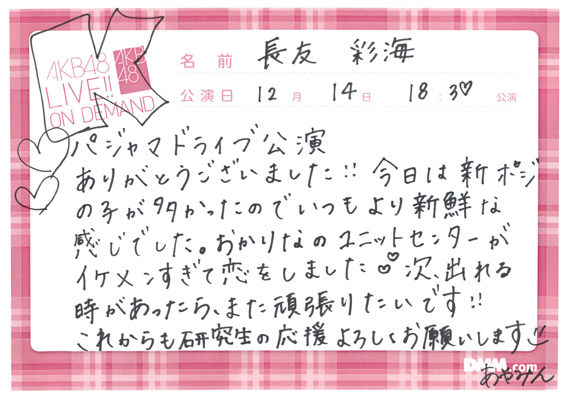 AKB48
LIVE!!
ON DEMAND
AKB
48
名前 長友 彩海
公演日 12月 14日 18:30 公演
パジャマドライブ公演
ありがとうございました!! 今日は新ポジ
の子が多かったのでいつもより新鮮な
感じでした。おかりなのユニットセンターが
イケメンすぎて恋をしました♡ 次、出れる
時があったら、また頑張りたいです!!
これからも研究生の応援よろしくお願いします
DMM.com
あやみん